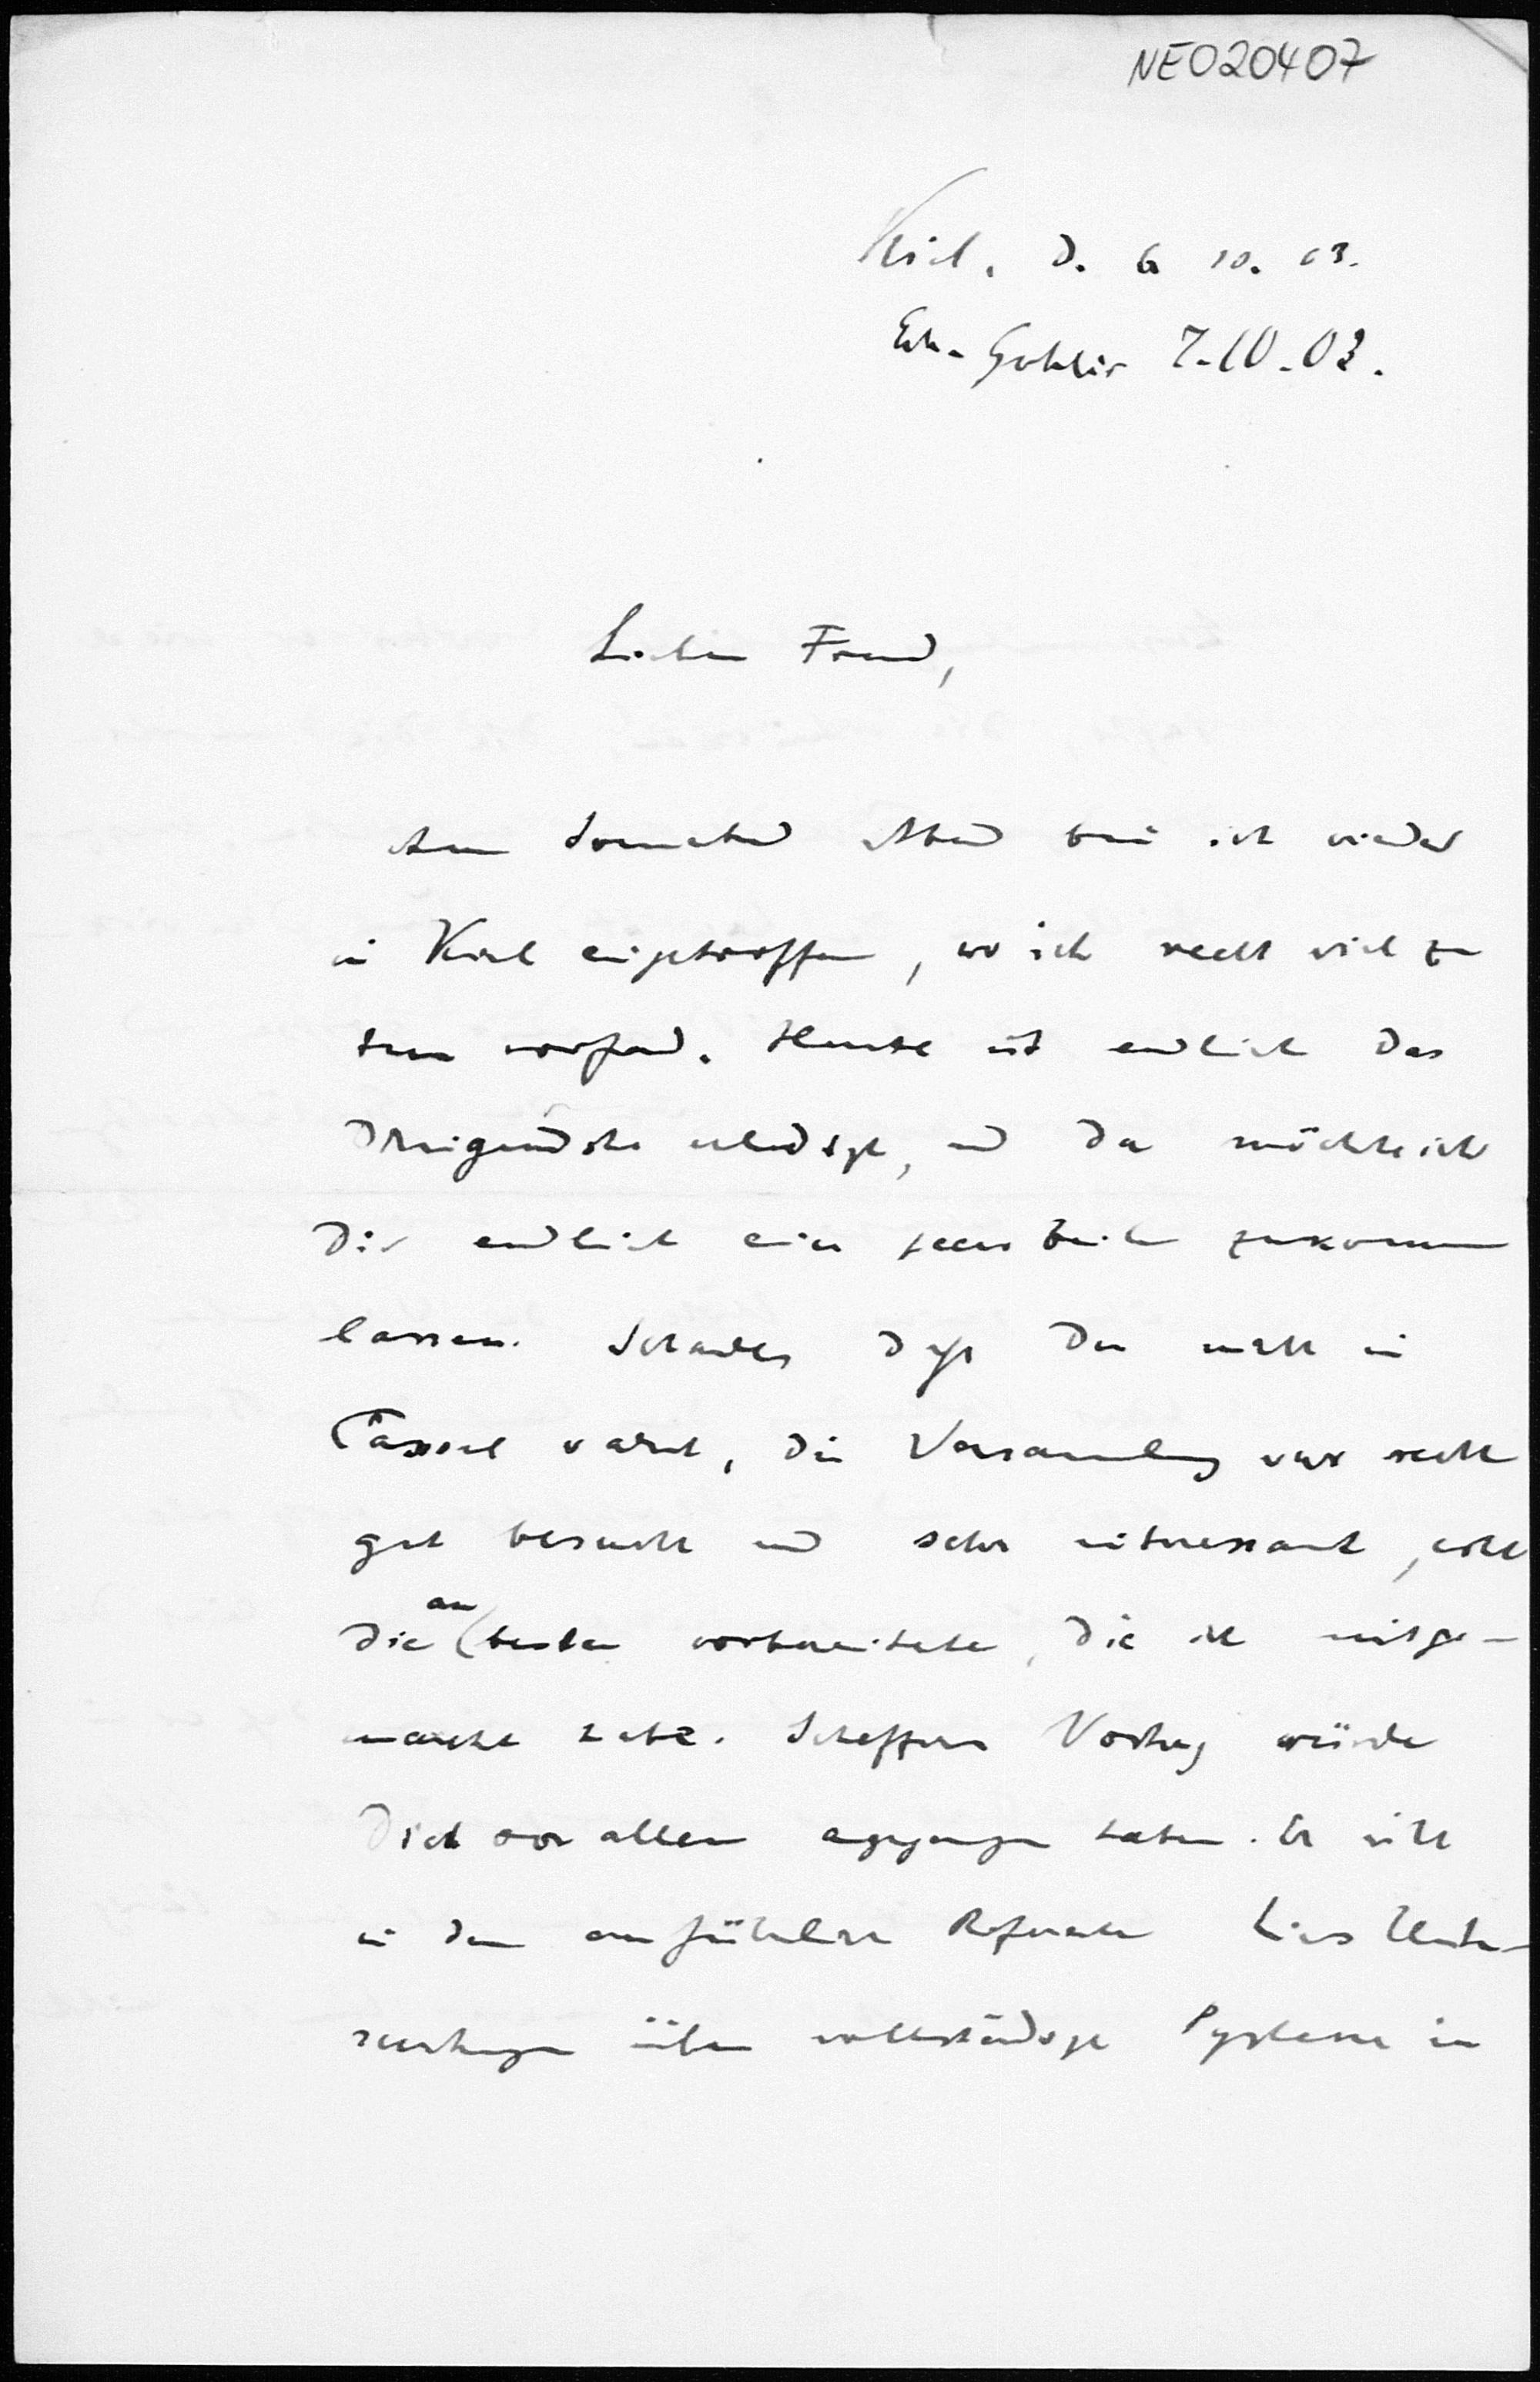 NE020407
Kiel, d. 6 10. 03.
Erh. Gohlis 7.10.03.
Lieber Freund,
Am Sonnabend Abend bin ich wieder
in Kiel eingetroffen, wo ich recht viel zu
tun vorfand. Heute ist endlich das
Dringendste erledigt, und da möchte ich
Dir endlich ein paar Zeilen zukommen
lassen. Schade, daß Du nicht in
Cassel warst, die Versammlung war recht
gut besucht und sehr interessant, wohl
die am besten vorbereitete, die ich mitge-
macht habe. Scheffers Vortrag würde
Dich vor allem angegangen haben. Er will
in dem ausführlichen Referate Lies Unter-
suchungen über vollständige Systeme in